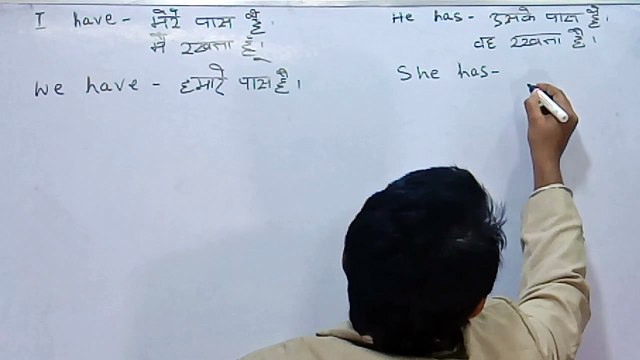 I have - मेरे पास है।
मै रखता हूँ।
we have - हमारे पास है।
He has - उसके पास है।
वह रखता है।
She has-